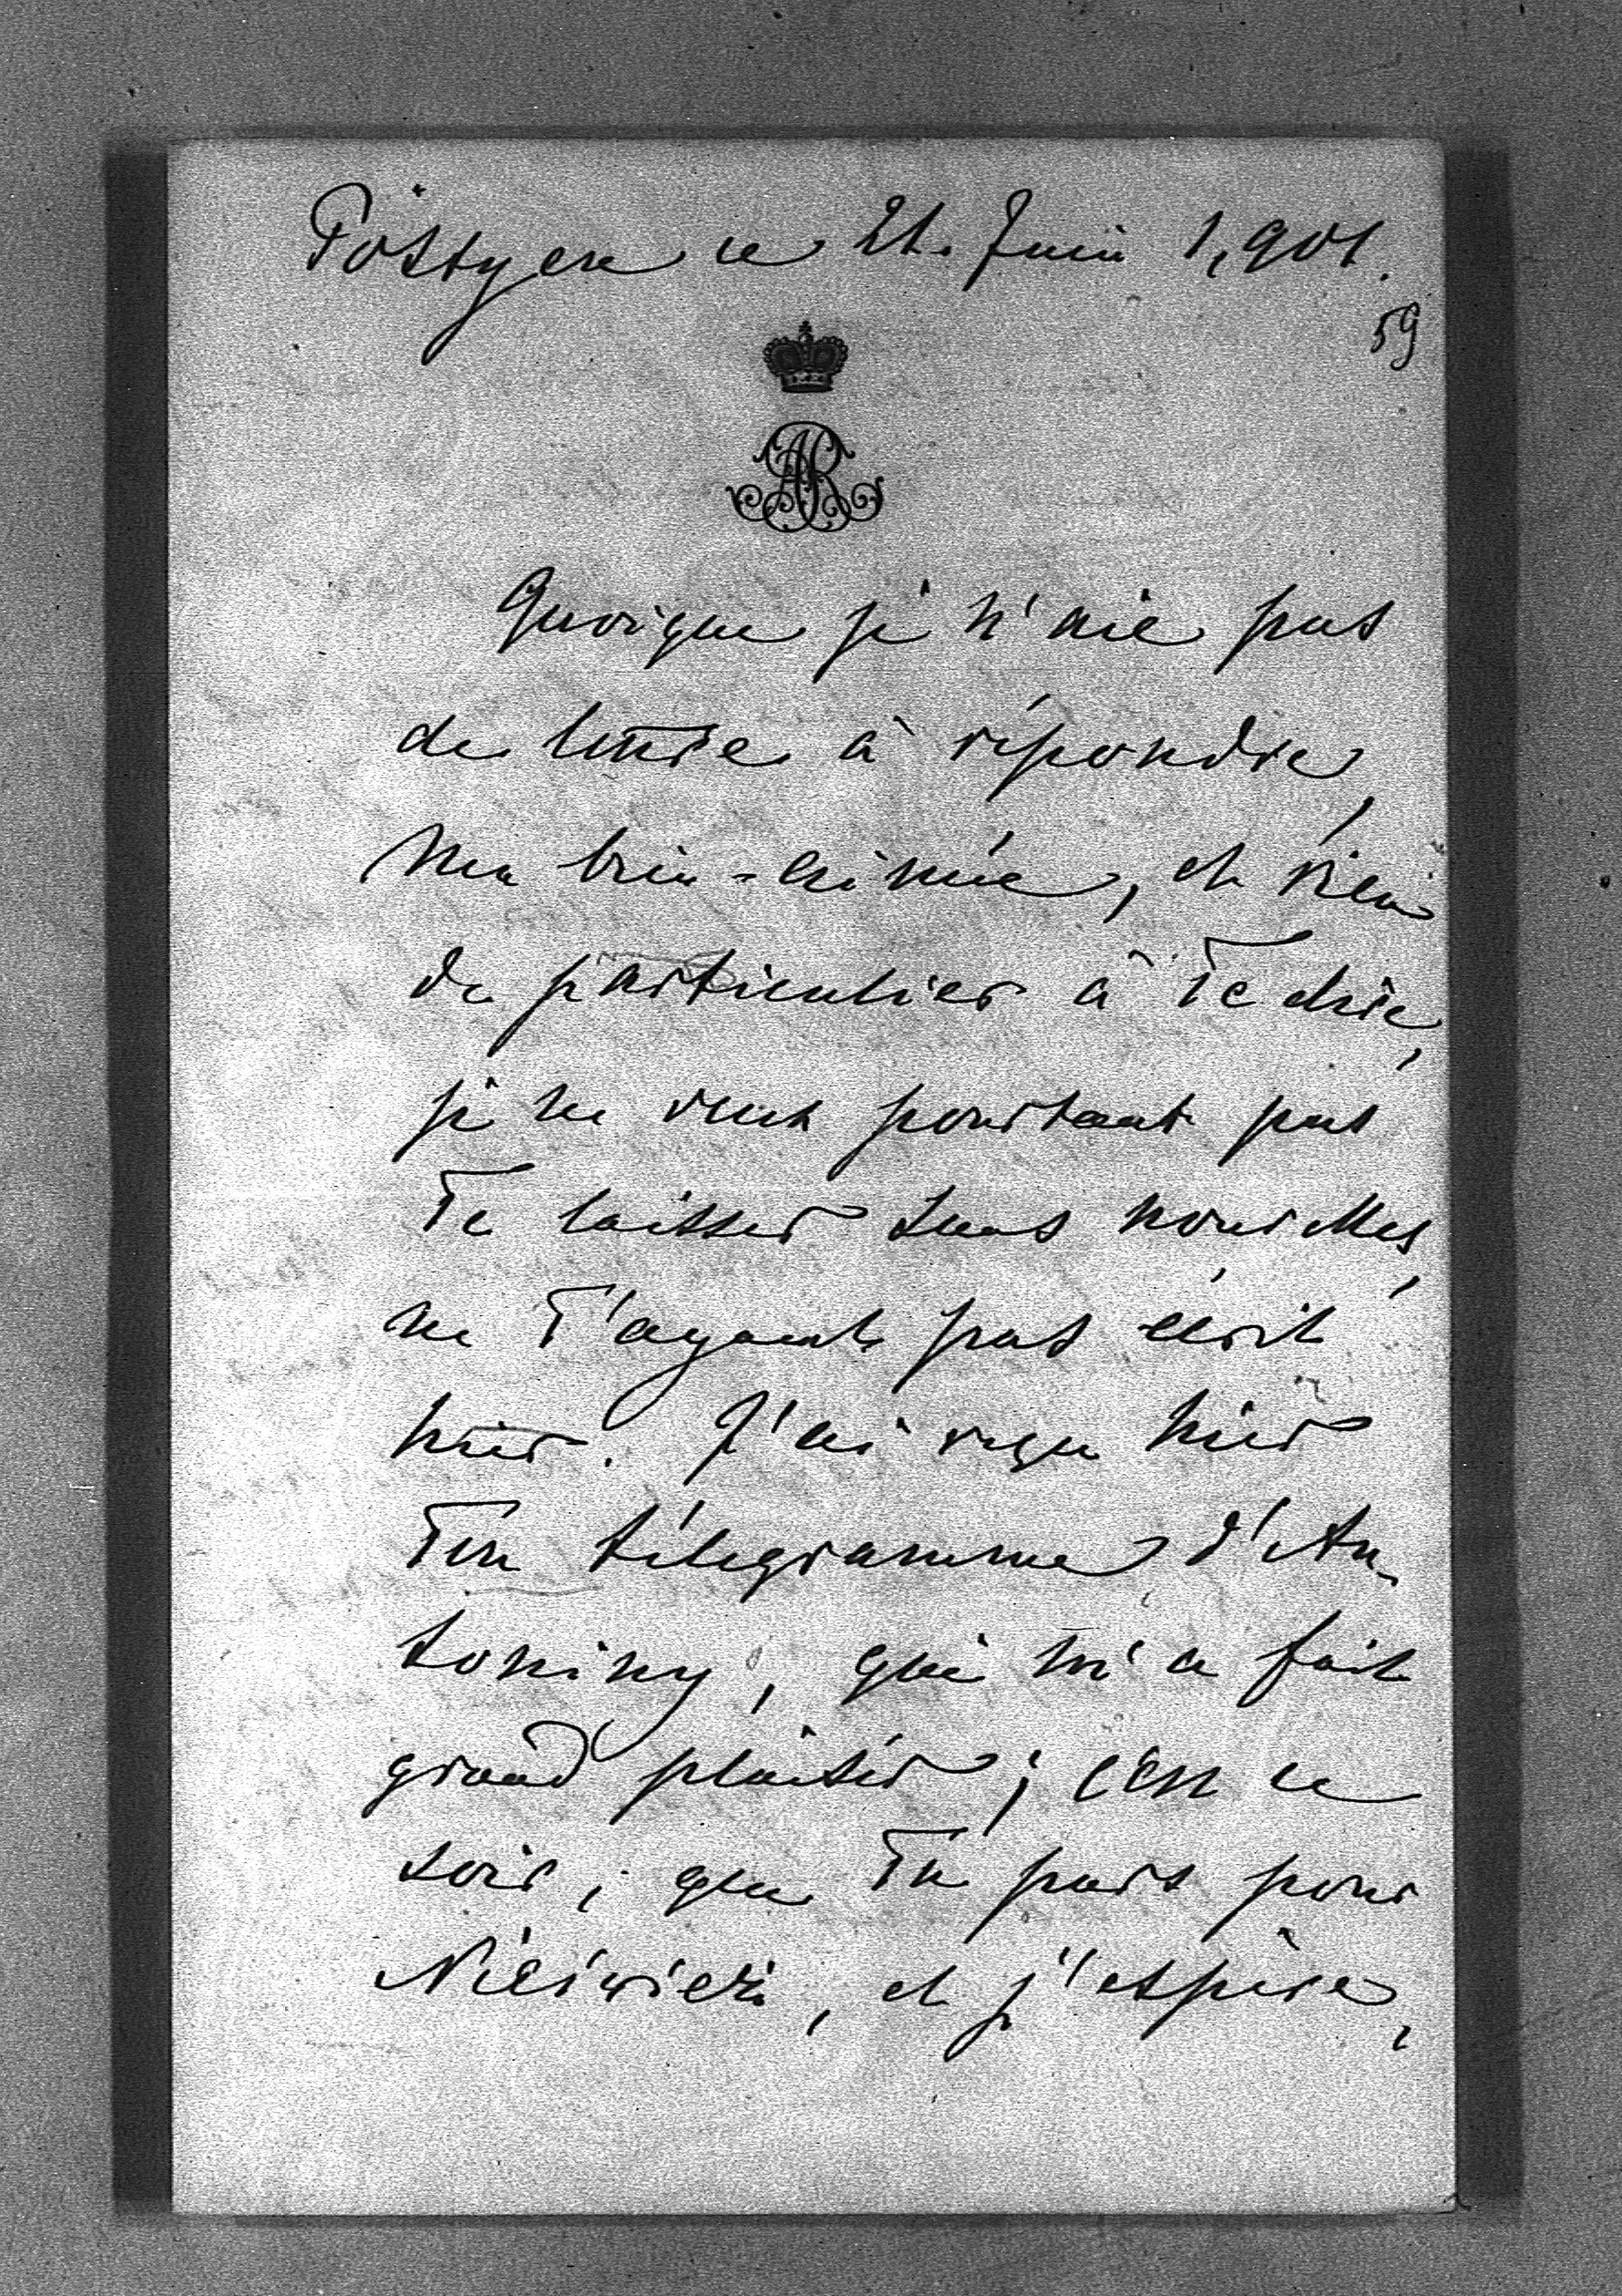 Pöstyen ce 21. Juin 1,901.
59
AR
Quoique je n'aie pas
de lettre à répondre,
Ma bien-aimée, et rien
de particulier à Te dire,
je ne veux pourtant pas
Te laisser sans nouvelles,
ne T'ayant pas écrit
hier. J'ai reçu hier
Ton télegramme d'An-
toniny, qui m'a fait
grand plaisir; c'est ce
soir, que Tu pars pour
Nieśwież, et j'espère,